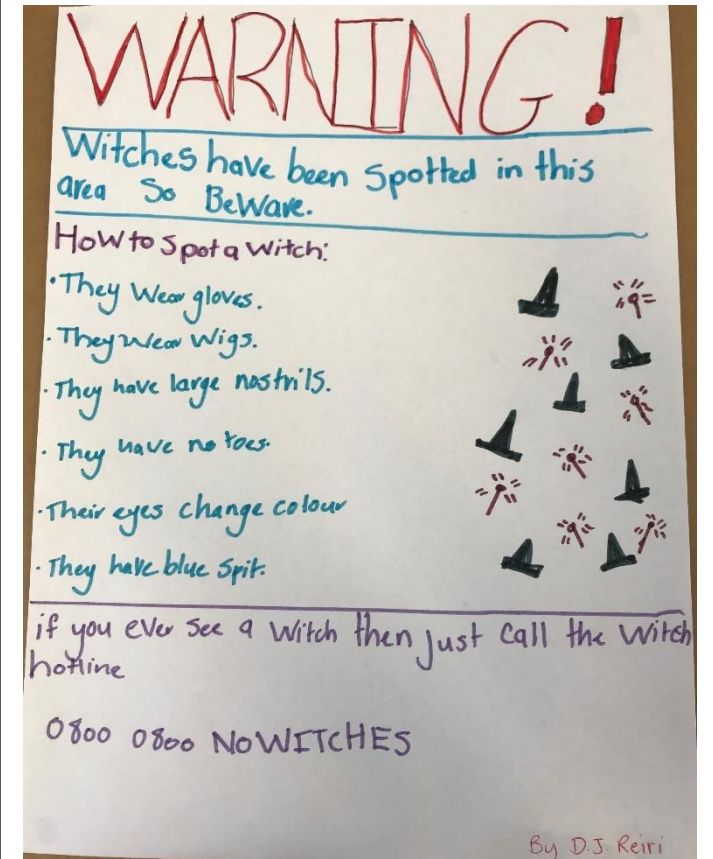 WARNING!
Witches have been Spotted in this
area So BeWare.
How to Spot a Witch:
· They Wear gloves.
· They Wear Wigs.
· They have large nostrils.
· They have no toes.
· Their eyes change colour
· They have blue Spit.
if you ever See a Witch then just Call the Witch
hotline
0800 0800 NOWITCHES
By D.J. Reiri